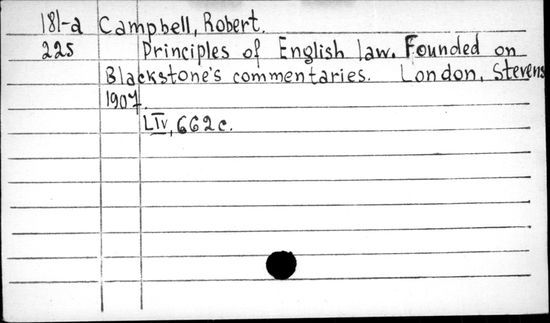 181-a Campbell, Robert.
225 Principles of English law. Founded on
Blackstone's commentaries. London, Stevens
1907.
LIV, 662 c.